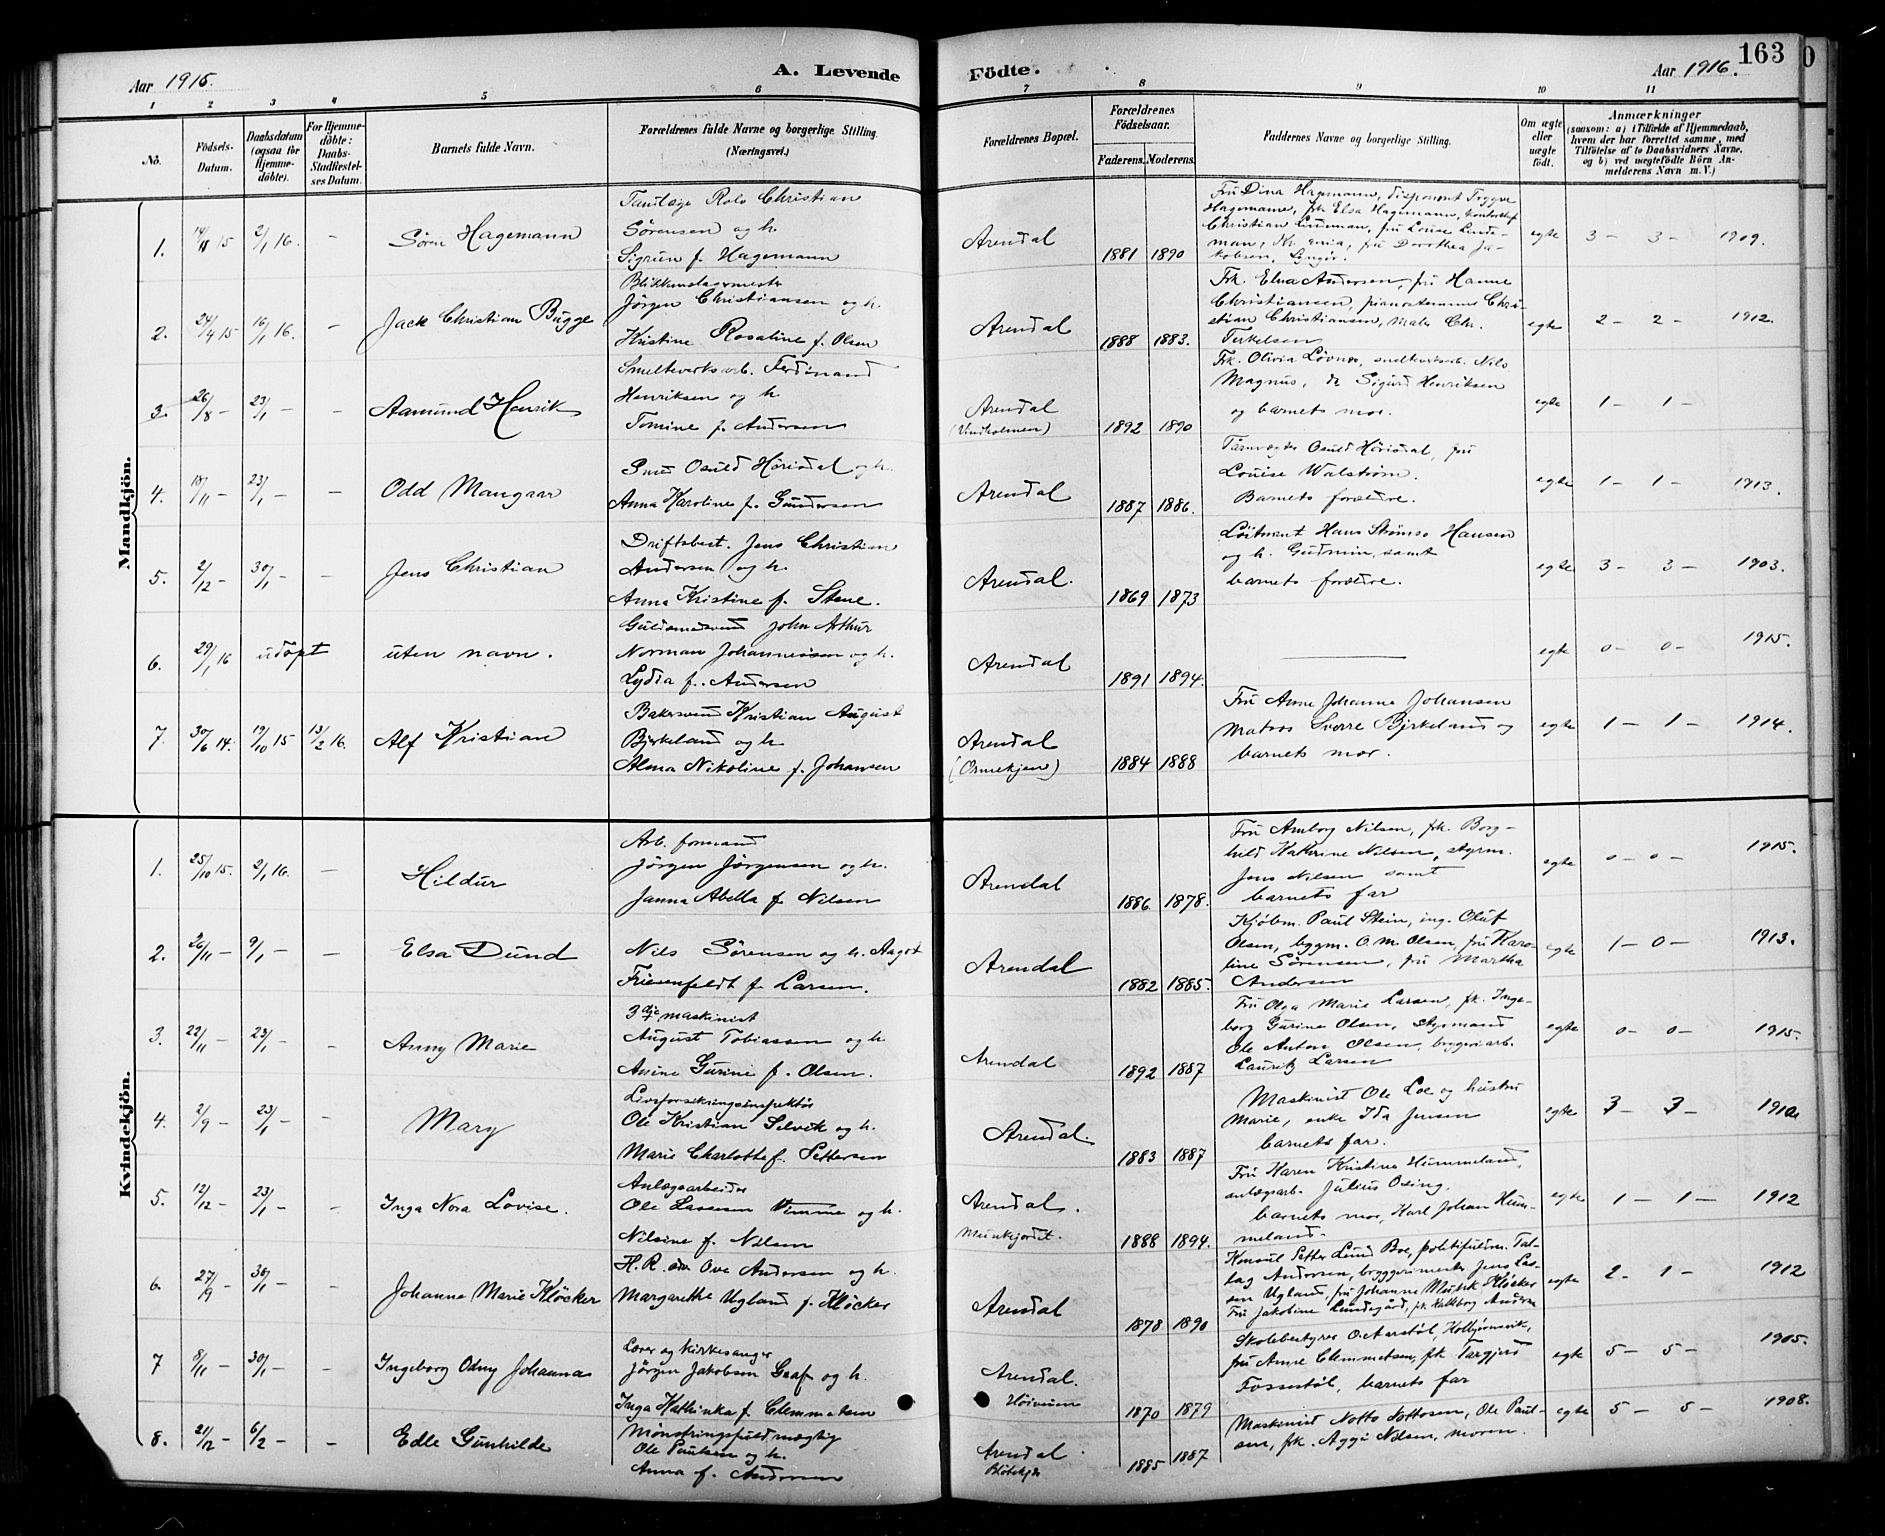 163
Aar 1916.
A. Levende
Födte.
Aar 1916.
1 2 3 4 5 6 7 8 9 10 11
No.
Födsels-Datum.
Daabsdatum (ogsaa for Hjemme-döbte).
For Hjemme-döbte: Daabs-Stadfæstel-ses Datum.
Barnets fulde Navn.
Forældrenes fulde Navne og borgerlige Stilling.
(Næringsvei.)
Forældrenes Bopæl.
Forældrenes Födselsaar.
Faderens. Moderens.
Faddernes Navne og borgerlige Stilling.
Om ægte eller uægte født.
Anmærkninger
(saasom: a) i Tilfælde af Hjemmedaab, hvem der har forrettet samme, med Tilföielse af to Daabsvidners Navne, og b) ved uægtefödte Börn An-melderens Navn m. V.)
Mandkjön.
1. 14/8 15 2/1 16. - Sören Hagemann
Tandlæge Rolo Christian
Sörensen og h.
Sigrun f. Hagemann
Arendal 1881 1890
Fru Dina Hagemann, disponent Trygve
Hagemann, frk Elsa Hagemann,
Christian Lindeman, fru Louise Linde-
man, Kr.ania, fru Dorothea Ja-
kobsen, Lyngør.
egte 3 - 3 - 1909.
2. 24/4 15 16/1 16. - Jack Christian Bugge
Blikkenslagermester
Jörgen Christiansen og h.
Kristine Rosaline f. Olsen
Arendal 1888 1883.
Frk. Elna Andersen, fru Hanne
Christiansen, pianostemmer Chri-
stian Christiansen, maler Chr.
Terkelsen
egte 2 - 2 - 1912.
3. 26/8 - 23/1 - - Aamund Henrik
Smelteverksarb. Ferdinand
Henriksen og h.
Tomine f. Andersen
Arendal
(Vindholmen) 1892 1890
Frk. Olivia Løvnes, smelteverksarb. Nils
Magnus, do Sigurd Henriksen
og barnets mor.
egte 1 - 1 -
4. 18/11 - 23/1 - - Odd Mangaar
Smed Osuld Hörisdal og h.
Anna Karoline f. Gundersen
Arendal 1887 1886.
Taarnvægter Osuld Hörisdal, fru
Louise Walstrøm.
Barnets forældre.
egte 1 - 1 - 1913.
5. 2/12 - 30/1 - - Jens Christian
Driftsbest. Jens Christian
Andersen og h.
Anna Kristine f. Stene.
Arendal. 1869 1873
Løitnant Hans Strømso Hansen
og h. Gudrun, samt
barnets forældre.
egte 3 - 3 - 1903.
6. 29/1 16 udøpt uten navn.
Guldsmedsvend John Arthur
Norman Johannessen og h.
Lydia f. Andersen
Arendal 1891 1894.
egte 0 - 0 - 1915.
7. 30/6 14. 19/10 15 13/2 16. Alf Kristian
Bakersvend Kristian August
Bjrkeland og h.
Alma Nikoline f. Johansen
Arendal
(Ormekjen) 1884 1888
Fru Anne Johanne Johansen
Matros Sverre Bjrkeland og
barnets mor.
egte 1 - 1 - 1914.
Kvindekjön.
1. 25/10 15. 2/1 16. - Hildur
Arb. formand
Jørgen Jørgensen og h.
Janna Abella f. Nilsen
Arendal 1886. 1878.
Fru Amborg Nilsen, frk. Borg-
hild Katrine Nilsen, styrm.
Jens Nilsen samt
barnets far
egte 0 - 0 - 1915.
2. 26/11 - 9/1 - - Elsa Dund
Nils Sørensen og h. Aagot
Frienfeldt f Larsen.
Arendal 1882 1885.
Kjøbm. Paul Stein, ing. Oluf
Olsen, byggm. O. M. Olsen, fru Karo-
line Sørensen, fru Martha
Andersen
egte 1 - 0 - 1913.
3. 22/11 - 23/1 - - Anny Marie
3dje maskinist
August Tobiassen og h
Anine Gurine f. Olsen.
Arendal 1892 1887
Fru Olga Marie Larsen, frk. Inge-
borg Gurine Olsen, styrmand
Ole Anton Olsen, bryggeriarb.
Lauritz Larsen
egte 0 - 0 - 1915.
4. 2/9 - 23/1 - - Mary
Livsforsikringsinspektør
Ole Kristian Selvik og h.
Marie Charlotte f. Pettersen
Arendal. 1883 1887
Maskinist Ole Loe og hustru
Marie, enke Ida Jensen
barnets far.
egte 3 - 3 -
5. 12/12 - 23/1 - - Inga Nora Lovise.
Anlægsarbeider
Ole Lassesen Vimme og h.
Nilsine f. Nilsen
Arendal.
Munkjordet. 1888 1894.
Fru Karen Kristine Hummeland,
anlægarb. Julius Osing.
barnets mor, Karl Johan Hum-
meland.
egte 1 - 1 - 1912
6. 27/9 - 30/1 - - Johanne Marie Kløcker
H.R. adv Ove Andersen og h.
Margarethe Ugland f. Kløcker
Arendal 1878 1890
Konsul Petter Lund Boe, politifuldm. Tal-
lag Andersen, bryggerimester Jens Las-
sen Ugland, fru Johanne Kløcker
Fru Jakobine Lundegård, frk Andersen
egte 2 - 1 - 1912
7 8/11 - 30/1 - - Ingeborg Odny Johanna
Lærer og kirkesanger
Jörgen Jakobsen Graf og h.
Inga Kathinka f. Clemmetsen
Arendal.
Høiveien 1870 1879
Skolebestyrer O. Aarstøl, Kolbjørnsvik,
fru Anne Clemmetsen, frk Torgjerd
Fossestøl, barnets far
egte 5 - 5 - 1905.
8. 21/12 - 6/2 - - Edle Gunhilde
Mønstringsfuldmægtig
Ole Paulsen og h.
Anna f. Andersen
Arendal
1885 1887
Maskinist Notto Nottosen, Ole Paul-
sen, frk. Aggi Nilsen, moren.
egte 5 - 5 - 1908.